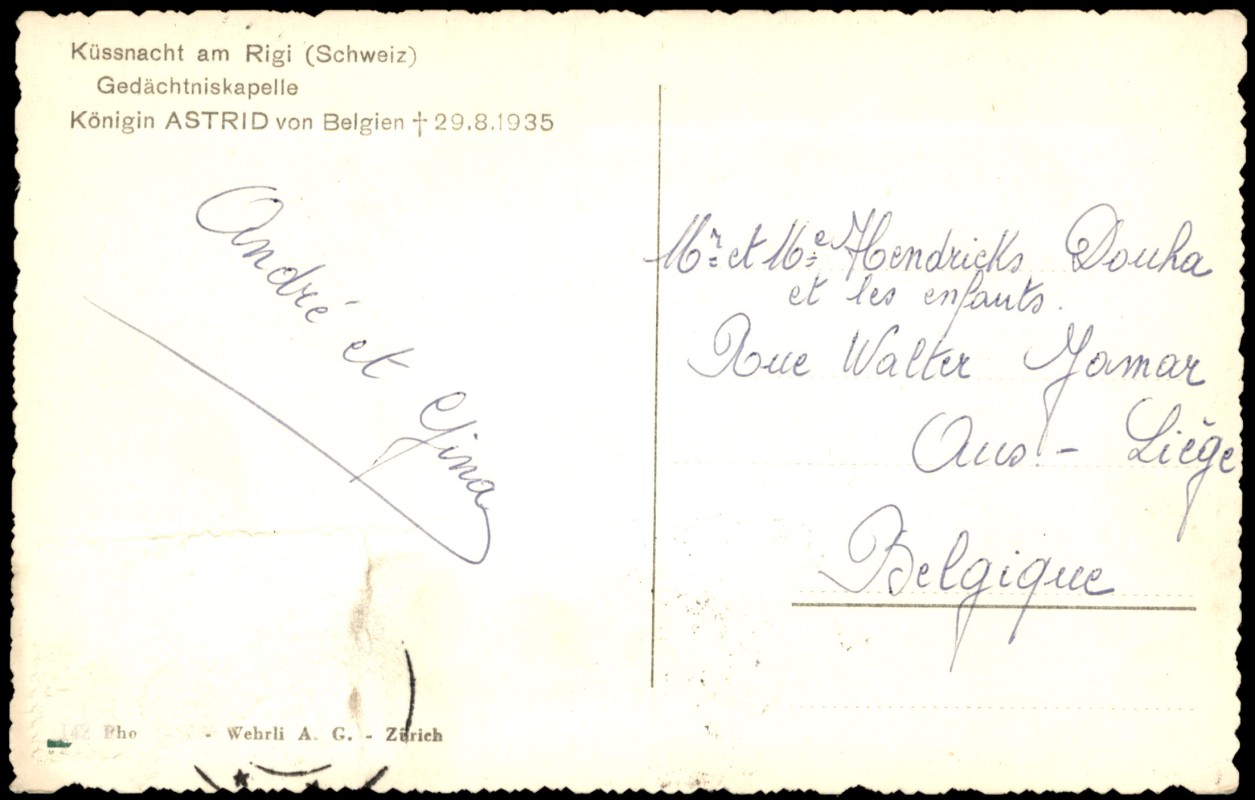 Küssnacht am Rigi (Schweiz)
Gedächtniskapelle
Königin ASTRID von Belgien † 29.8.1935
André et Gina
Mr et Me Hendricks Douha
et les enfants.
Rue Walter Jamar
Ans - Liège
Belgique
142 Pho - Wehrli A. G. - Zürich